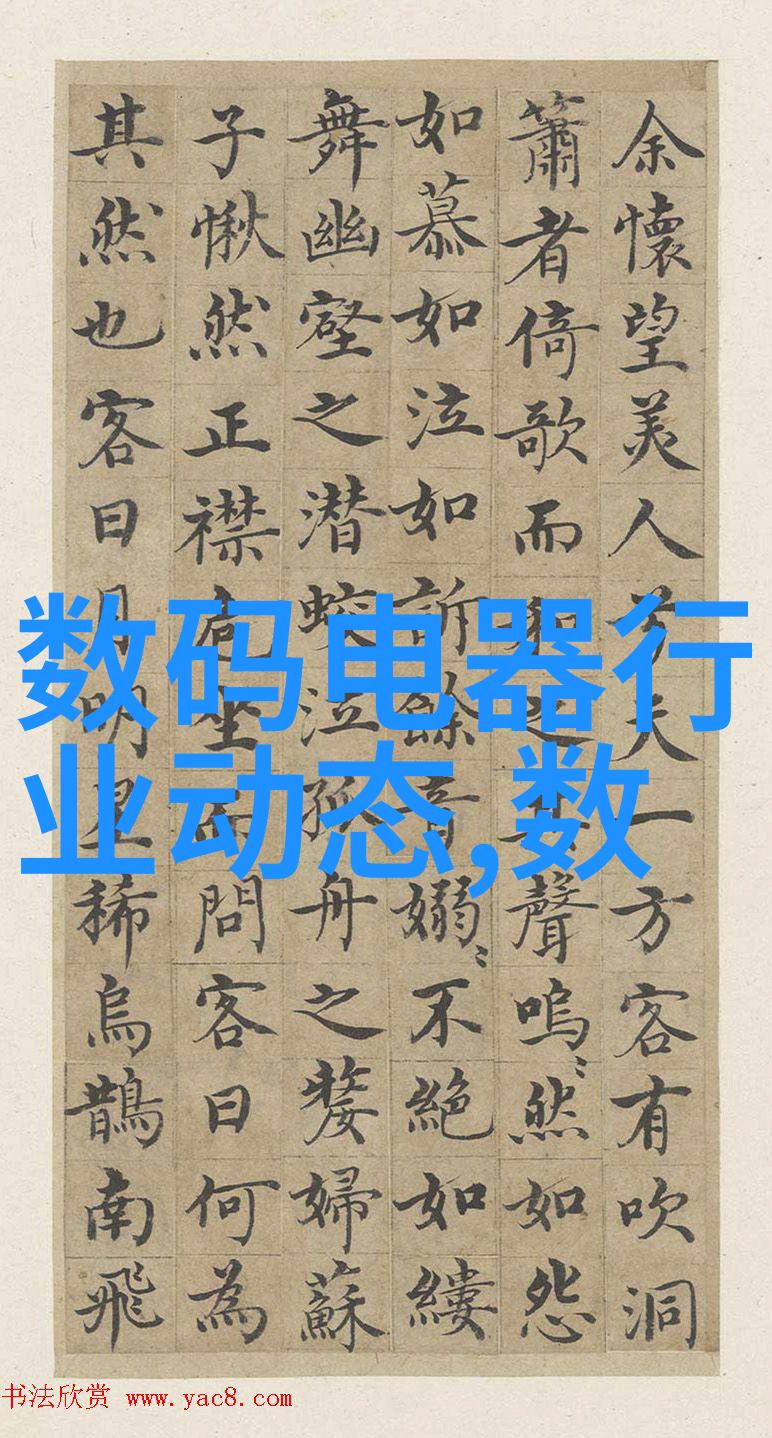 余懷望美人兮天一方客有吹洞
簫者倚歌而和之其聲嗚〻然如怨
如慕如泣如訴餘音嫋〻不絶如縷
舞幽壑之潜蛟泣孤舟之嫠婦蘇
子愀然正襟危坐而問客曰何為
其然也客曰月明星稀烏鵲南飛
数码电器行
业动态,数
书法欣赏 www.yac8.com